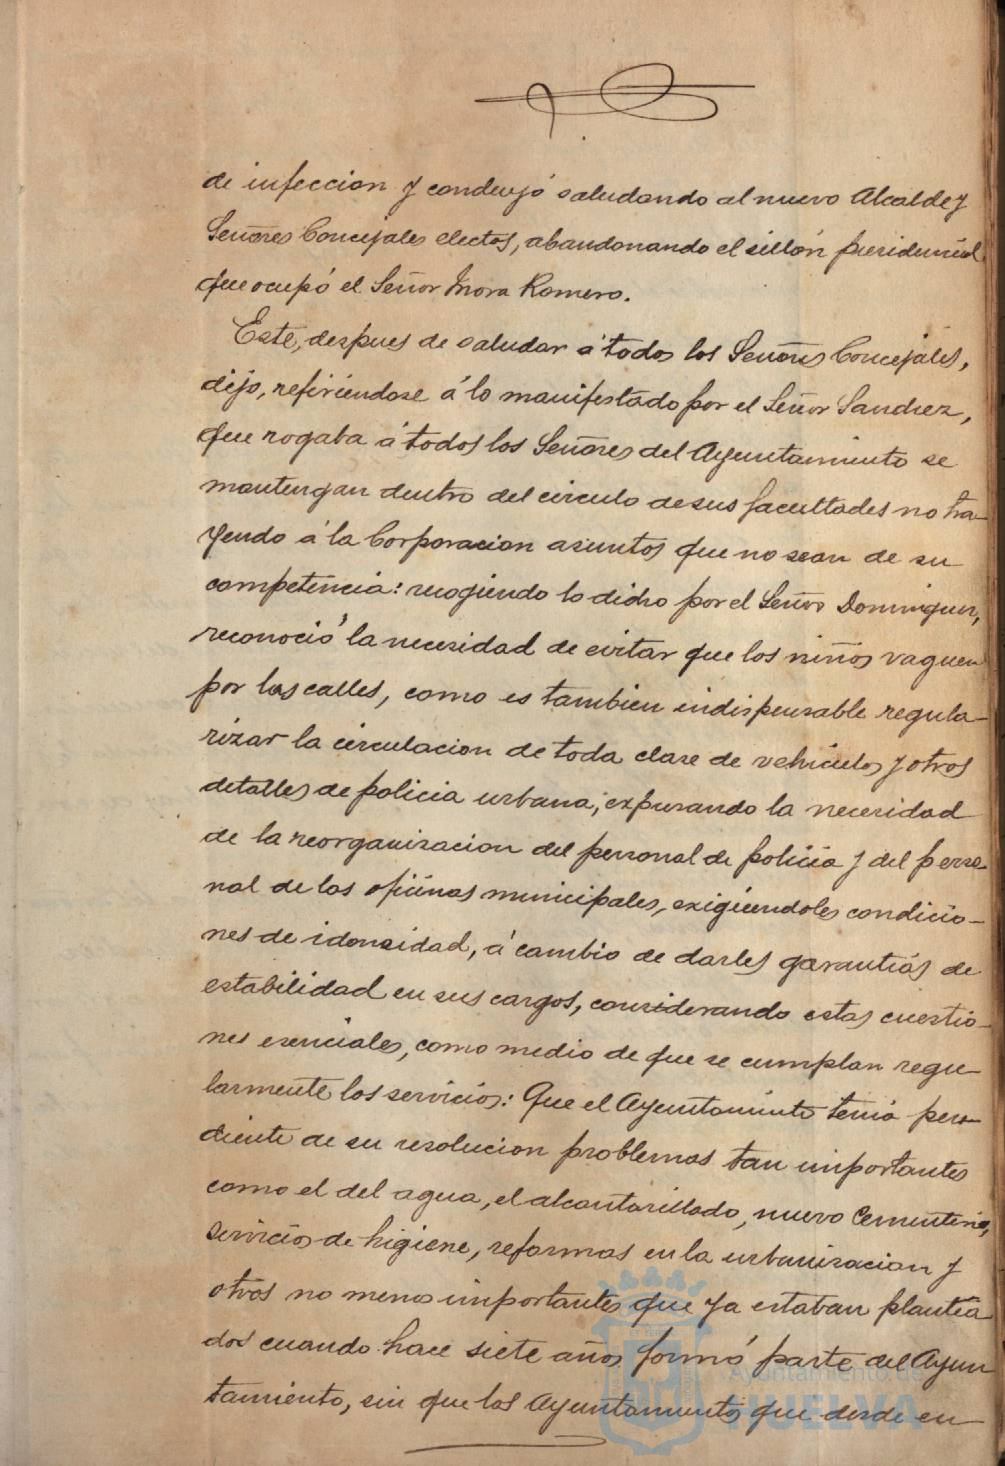 de infeccion y concluyó saludando al nuevo Alcalde y
Señores Concejales electos, abandonando el sillón presidencial
que ocupó el Señor Mora Romero.
Este, despues de saludar á todos los Señores Concejales,
dijo, refiriéndose á lo manifestado por el Señor Sanchez,
que rogaba á todos los Señores del Ayuntamiento se
mantengan dentro del circulo de sus facultades no tra-
yendo á la Corporacion asuntos que no sean de su
competencia: recogiendo lo dicho por el Señor Dominguez,
reconoció la necesidad de evitar que los niños vaguen
por las calles, como es tambien indispensable regula-
rizar la circulacion de toda clase de vehiculos y otros
detalles de policia urbana; expresando la necesidad
de la reorganizacion del personal de policia y del perso-
nal de las oficinas municipales, exigiendoles condicio-
nes de idoneidad, á cambio de darles garantias de
estabilidad en sus cargos, considerando estas cuestio-
nes esenciales, como medio de que se cumplan regu-
larmente los servicios: Que el Ayuntamiento tenia pen-
diente de su resolucion problemas tan importantes
como el del agua, el alcantarillado, nuevo Cementerio,
servicios de higiene, reformas en la urbanizacion y
otros no menos importantes que ya estaban plantea
dos cuando hace siete años formó parte del Ayun
tamiento, sin que los Ayuntamientos que desde en-
Ayuntamiento de
HUELVA